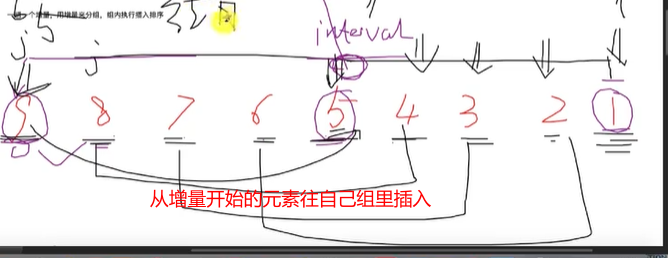 个增量，用增量来分组，组内执行插入排序
interval
j
9 8 7 6 5 4 3 2 1
从增量开始的元素往自己组里插入